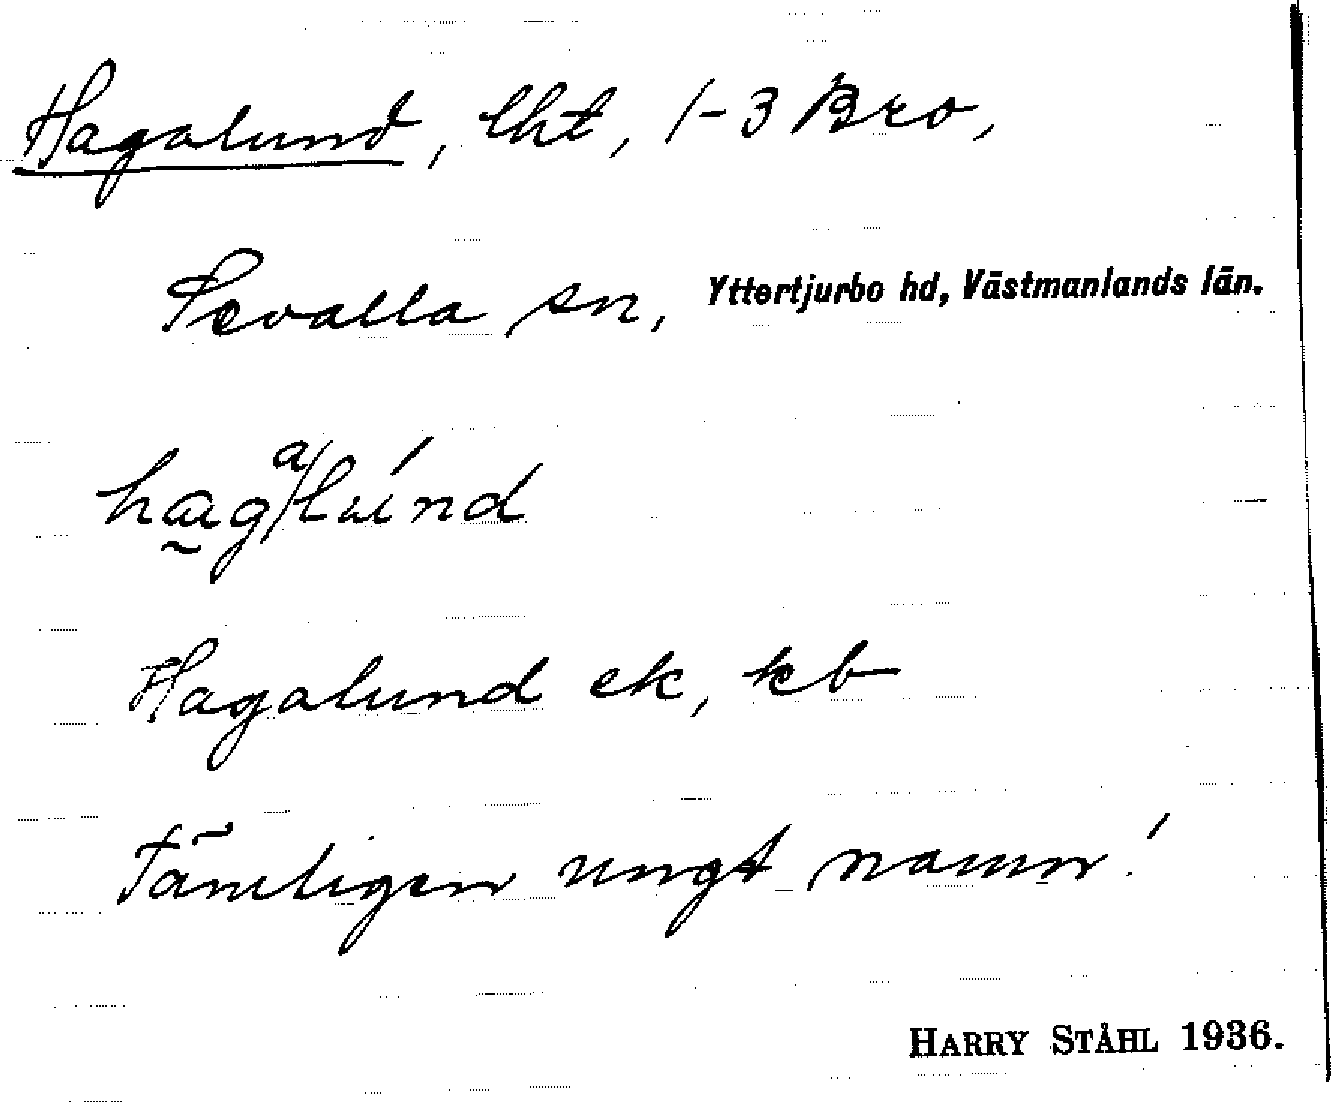 Hagalund, lht, 1-3 Bro,
Sevalla sn, Yttertjurbo hd, Västmanlands län.
hag a/lúnd
Hagalund ek, kb
Tämligen ungt namn!
HARRY STÅHL 1936.